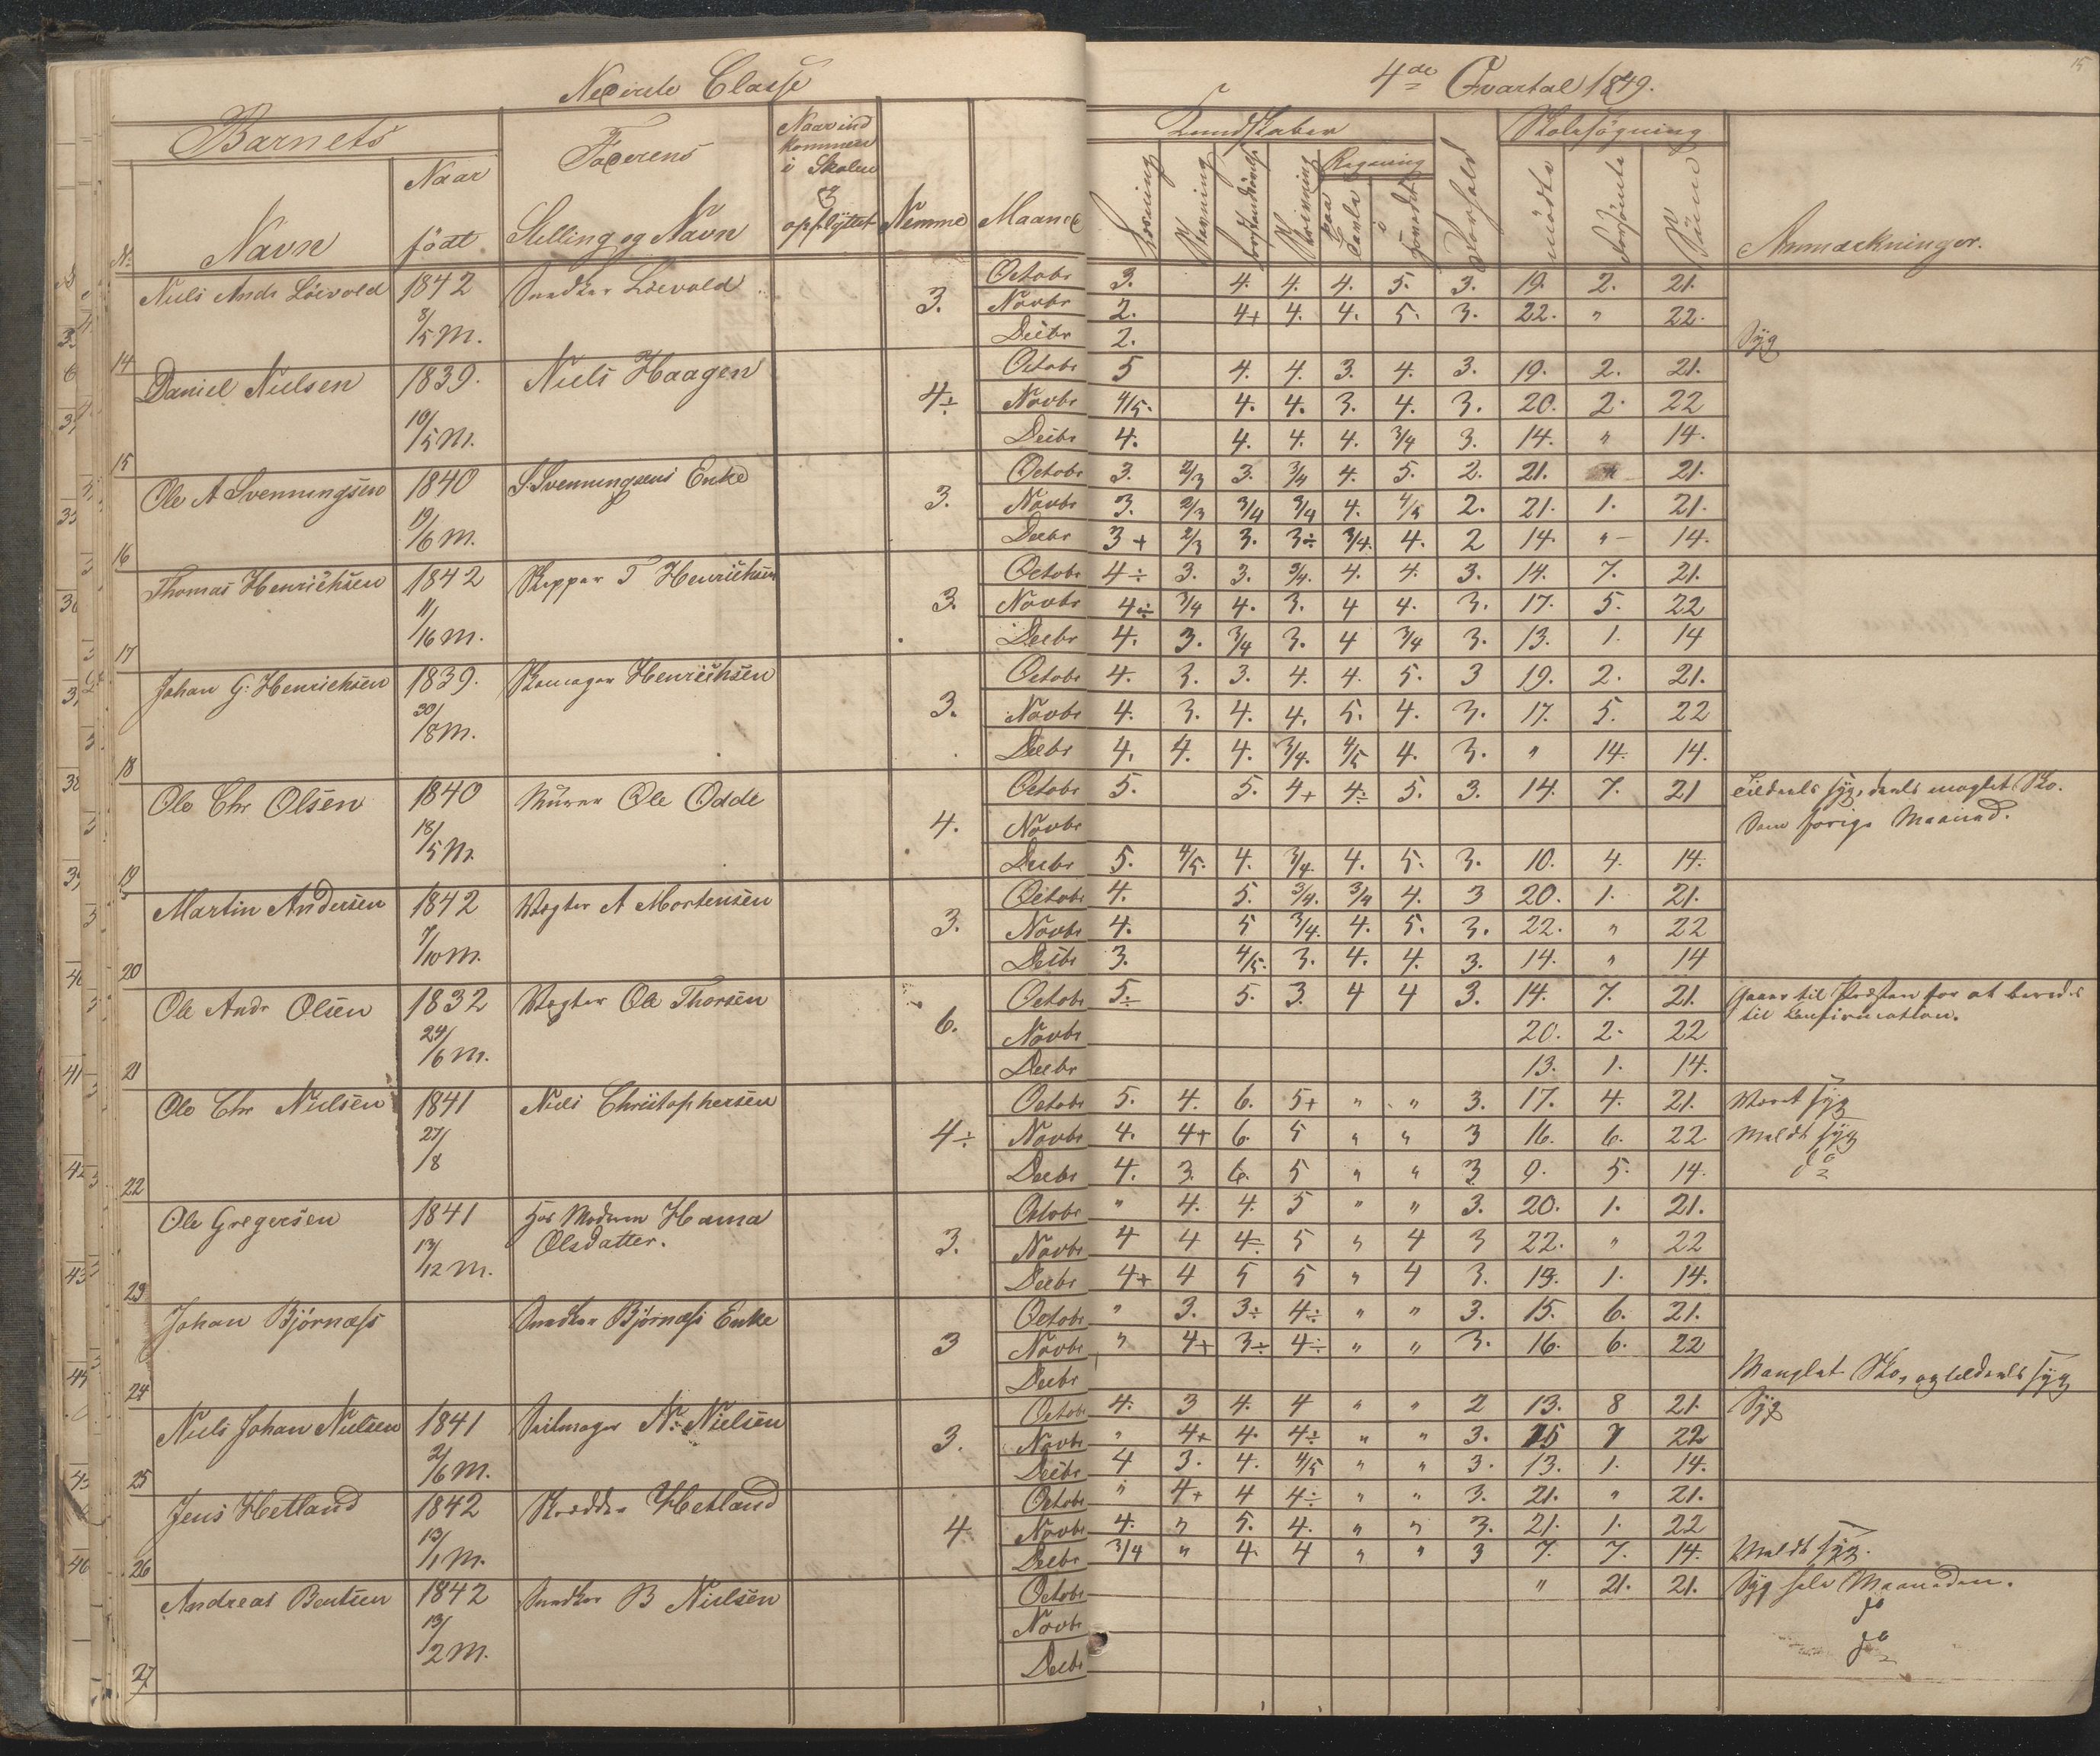 Nederste Classe
4de Qvartal 1849.
15
Barnets
Faderens
Naar ind
kommen
i Skolen
&
opflyttet
Nemme
Maaned
Kundskaber
Skolesøgning
Anmærkninger.
No
Navn
Naar
født
Stilling og Navn
Læsning
Skrivning
Regning
paa
Tavle
i
Hovedet
Forhold
mødte
forsømte
14 Niels Andr Löevold 1842 8/5 M. Snedker Löevold 3.
Octobr 3. 4. 4. 4. 5. 3. 19. 2. 21.
Novbr 2. 4+ 4. 4. 5. 3. 22. " 22.
Decbr 2. Syg
15 Daniel Nielsen 1839. 10/5 M. Niels Haagen 4÷
Octobr 5 4. 4. 3. 4. 3. 19. 2. 21.
Novbr 4/5. 4. 4. 3. 4. 3. 20. 2. 22
Decbr 4. 4. 4. 4. 3/4 3. 14. " 14.
16 Ole A Svenningsen 1840 19/6 M. S. Svenningsens Enke 3.
Octobr 3. 2/3 3. 3/4 4. 5. 2. 21. " 21.
Novbr 3. 2/3 3/4 3/4 4. 4/5 2. 21. 1. 21.
Decbr 3+ 2/3 3. 3÷ 3/4. 4. 2 14. " 14.
17 Thomas Henrichsen 1842 11/16 M. Skipper T Henrichsen 3.
Octobr 4÷ 3. 3. 3/4. 4. 4. 3. 14. 7. 21.
Novbr 4÷ 3/4 4. 3. 4 4. 3. 17. 5. 22
Decbr 4. 3. 3/4 3. 4 3/4 3. 13. 1. 14
18 Johan G. Henrichsen 1839. 30/8 M. Skomager Henrichsen 3.
Octobr 4. 3. 3. 4. 4. 5. 3 19. 2. 21.
Novbr 4. 3. 4. 4. 5. 4. 3. 17. 5. 22
Decbr 4. 4. 4. 3/4. 4/5 4. 3. " 14. 14.
19 Ole Chr Olsen 1840 18/5 M. Murer Ole Odde 4.
Octobr 5. 5. 4+ 4÷ 5. 3. 14. 7. 21 Tildeels syg, deels manglet Sko.
Novbr Som forige Maaned.
Decbr 5. 4/5. 4. 3/4. 4. 5. 3. 10. 4. 14.
20 Martin Andersen 1842 7/10 M. Vægter A Mortensen 3.
Octobr 4. 5. 3/4. 3/4 4. 3 20. 1. 21.
Novbr 4. 5 3/4. 4. 5. 3. 22. " 22
Decbr 3. 4/5. 3. 4. 4. 3. 14. " 14
21 Ole Andr Olsen 1832 24/6 M. Vægter Ole Thorsen 6.
Octobr 5÷ 5. 3. 4 4 3. 14. 7. 21. gaaer til Præsten for at beredes
til Confirmation.
Novbr 20. 2. 22
Decbr 13. 1. 14.
22 Ole Chr Nielsen 1841 27/8 Niels Christophersen 4÷
Octobr 5. 4. 6. 5+ " " 3. 17. 4. 21. Været syg
Novbr 4. 4+ 6. 5 " " 3 16. 6. 22 Meldt syg
Decbr 4. 3. 6. 5 " " 3 9. 5. 14. do
23 Ole Gregersen 1841 13/12 M. hos Moderen Hanna
Olsdatter. 3.
Octobr " 4. 4. 5 " " 3. 20. 1. 21.
Novbr 4 4 4÷ 5 " 4 3 22. " 22
Decbr 4+ 4 5 5 " 4 3. 13. 1. 14.
24 Johan Björnæss Snedker Björnæss Enke 3
Octobr " 3. 3÷ 4÷ " " 3. 15. 6. 21.
Novbr " 4+ 3÷ 4÷ " " 3. 16. 6. 22
Decbr Manglet Sko, og tildeels syg
25 Niels Johan Nielsen 1841 2/6 M. Seilmager N. Nielsen 3.
Octobr 4. 3 4. 4 " " 2 13. 8 21. Syg
Novbr " 4+ 4. 4÷ " " 3. 15 7 22
Decbr 4 3. 4. 4/5 " " 3. 13. 1. 14.
26 Jens Hetland 1842 13/1 M. Skrædder Hetland 4.
Octobr " 4+ 4 4÷ " " 3. 21. " 21.
Novbr 4. " 5. 4. " " 3. 21. 1. 22
Decbr 3/4 " 4 4 " " 3 7. 7. 14. Meldt syg.
27 Andreas Bentsen 1842 13/2 M. Snedker B Nielsen
Octobr " 21. 21. Syg hele Maaneden.
Novbr do
Decbr do